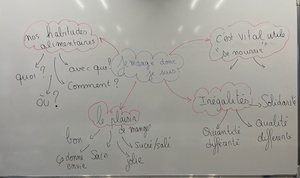 nos habitudes
alimentaires
quoi ?
OÙ ?
avec qui ?
Comment ?
je mange donc
je suis
c'est vital
"se nourrir"
Inégalités
Solidarité
Quantité
différente
Qualité
différente
le plaisir
de manger
bon
ça donne
envie
Sain
sucré/salé